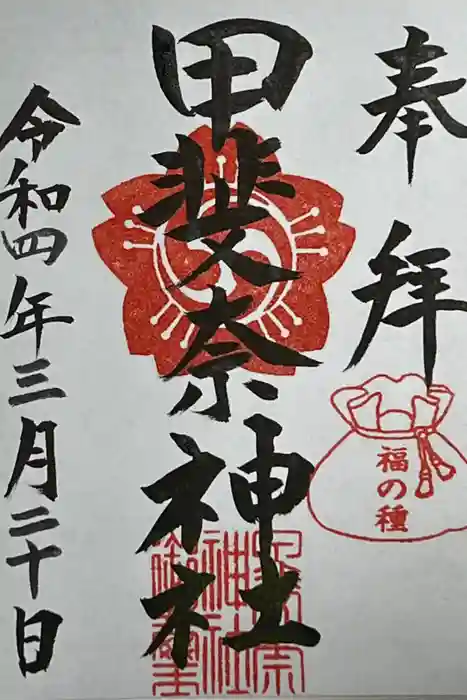 奉拝
福の種
甲斐奈神社
令和四年三月二十日